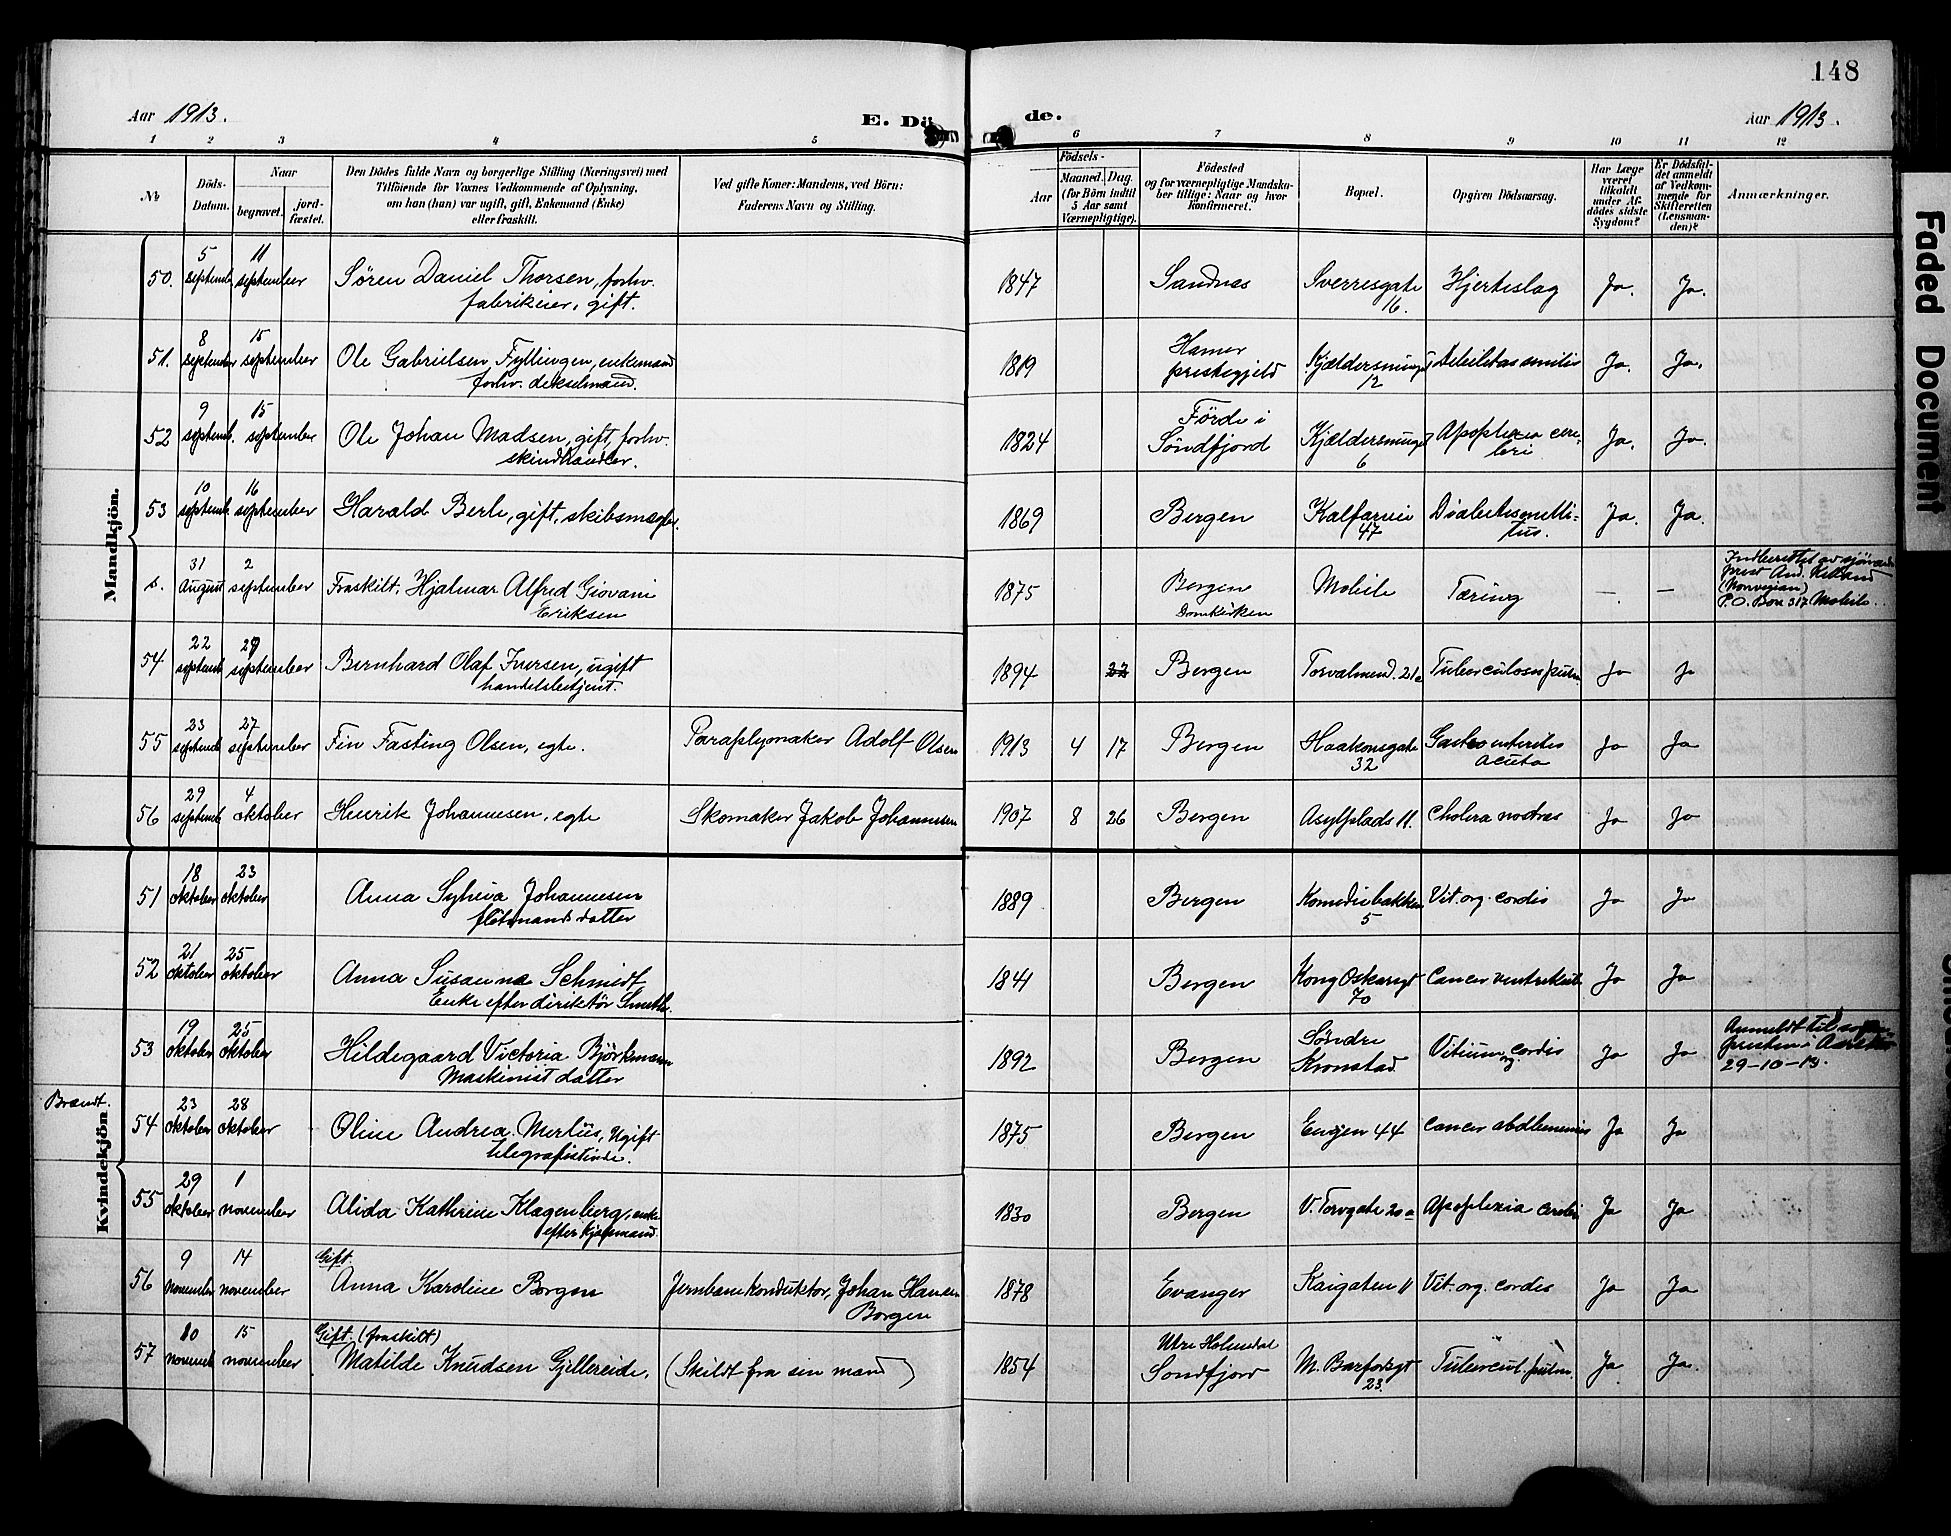 148
Aar 1913.
E. Dö
de.
Aar 1913.
1 2 3 4 5 6 7 8 9 10 11 12
No
Döds-
Datum.
Naar
begravet.
jord-
fæstet.
Den Dödes fulde Navn og borgerlige Stilling (Næringsvei) med
Tilföiende for Voxnes Vedkommende af Oplysning,
om han (hun) var ugift, gift, Enkemand (Enke)
eller fraskilt.
Ved gifte Koner: Mandens, ved Börn:
Faderens Navn og Stilling.
Födsels-
Aar
Maaned.
Dag.
(for Börn indtil
5 Aar samt
Værnepligtige).
Födested
og for værnepligtige Mandska-
ber tillige: Naar og hvor
konfirmeret.
Bopæl.
Opgiven Dödsaarsag.
Har Læge
været
tilkaldt
under Af-
dödes sidste
Sygdom?
Er Dödsfal-
det anmeldt
af Vedkom-
mende for
Skifteretten
(Lensman-
den)?
Anmærkninger.
Mandkjön.
50. 5 septemb. 11 september Søren Daniel Thorsen, forhv. 1847 Sandnes Sverresgate Hjerteslag Ja. Ja.
fabrikeier, gift. 16.
51. 8 september 15 september Ole Gabrielsen Fyllingen, enkemand 1819 Hamer Kjældersmuget Debilitas senilis Ja. Ja.
forhv. dekselmand. prestegjeld 12
52 9 septemb. 15 september Ole Johan Madsen, gift, forhv. 1824 Förde i Kjældersmuget Apoplexia cere- Ja. Ja.
skindhandler. Söndfjord 6 bri
53 10 septemb. 16 september Harald Berle, gift, skibsmægler. 1869 Bergen Kalfarvei Diabetes melli- Ja. Ja.
47 tus.
s. 31 August 2 september Fraskilt, Hjalmar Alfred Giovani 1875 Bergen Mobile Tæring — —
Eriksen Domkirken
Indberettet av sjömands
prest And. Killand
(Norvegian)
P.O. Box 317 Mobile.
54. 22 septemb 27 september Bernhard Olaf Iversen, ugift 1894 22 Bergen Torvalmend. 21a Tuberculosis pulm Ja Ja
handelsbetjent.
55 23 septemb 27 september Fin Fasting Olsen, egte. Paraplymaker Adolf Olsen 1913 4 17 Bergen Haakonsgate Gastroenterites Ja Ja
32 acuta
56 29 septemb 4 oktober Henrik Johannesen, egte Skomaker Jakob Johannessen 1907 8 26 Bergen Asylplads 11. Cholera nostras Ja Ja
Kvindekjön
51 18 oktober 23 oktober Anna Sylvia Johannesen 1889 Bergen Komediebakken Vit. org. cordis Ja Ja
flötmands datter 5
52 21 oktober 25 oktober Anna Susanne Schmidt 1841 Bergen Kong Oskarsgt Cancer ventrikuli Ja Ja
Enke efter direktör Smith. 70
53 19 oktober 25 oktober Hildegaard Victoria Björkmann 1892 Bergen Søndre Vitium org cordis Ja Ja
Maskinist datter Kronstad
Anmeldt til sogne-
presten i Aarstad
29-10-13.
Brandt.
54 23 oktober 28 oktober Oline Andrea Mertüs, Ugift 1875 Bergen Engen 44 Cancer abdomenis Ja Ja
telegrafistinde.
55 29 oktober 1 november Alida Kathrine Klagenberg, enke 1830 Bergen V. Torvgate 20 a Apoplexia cerebri Ja Ja
efter kjöpmand.
56 9 november 14 november Gift
Anna Karoline Borgen Jernbanekonduktör, Johan Hansen 1878 Evanger Kaigaten 11 Vit. org. cordis Ja Ja
Borgen
57 10 novemb 15 november Gift. (fraskilt) Ytre Holmedal
Matilde Knudsen Gjellereide, (Skildt fra sin mand) 1854 Sondfjord M. Barfodsgt Tubercul. pulm. Ja Ja.
23.
Faded Document